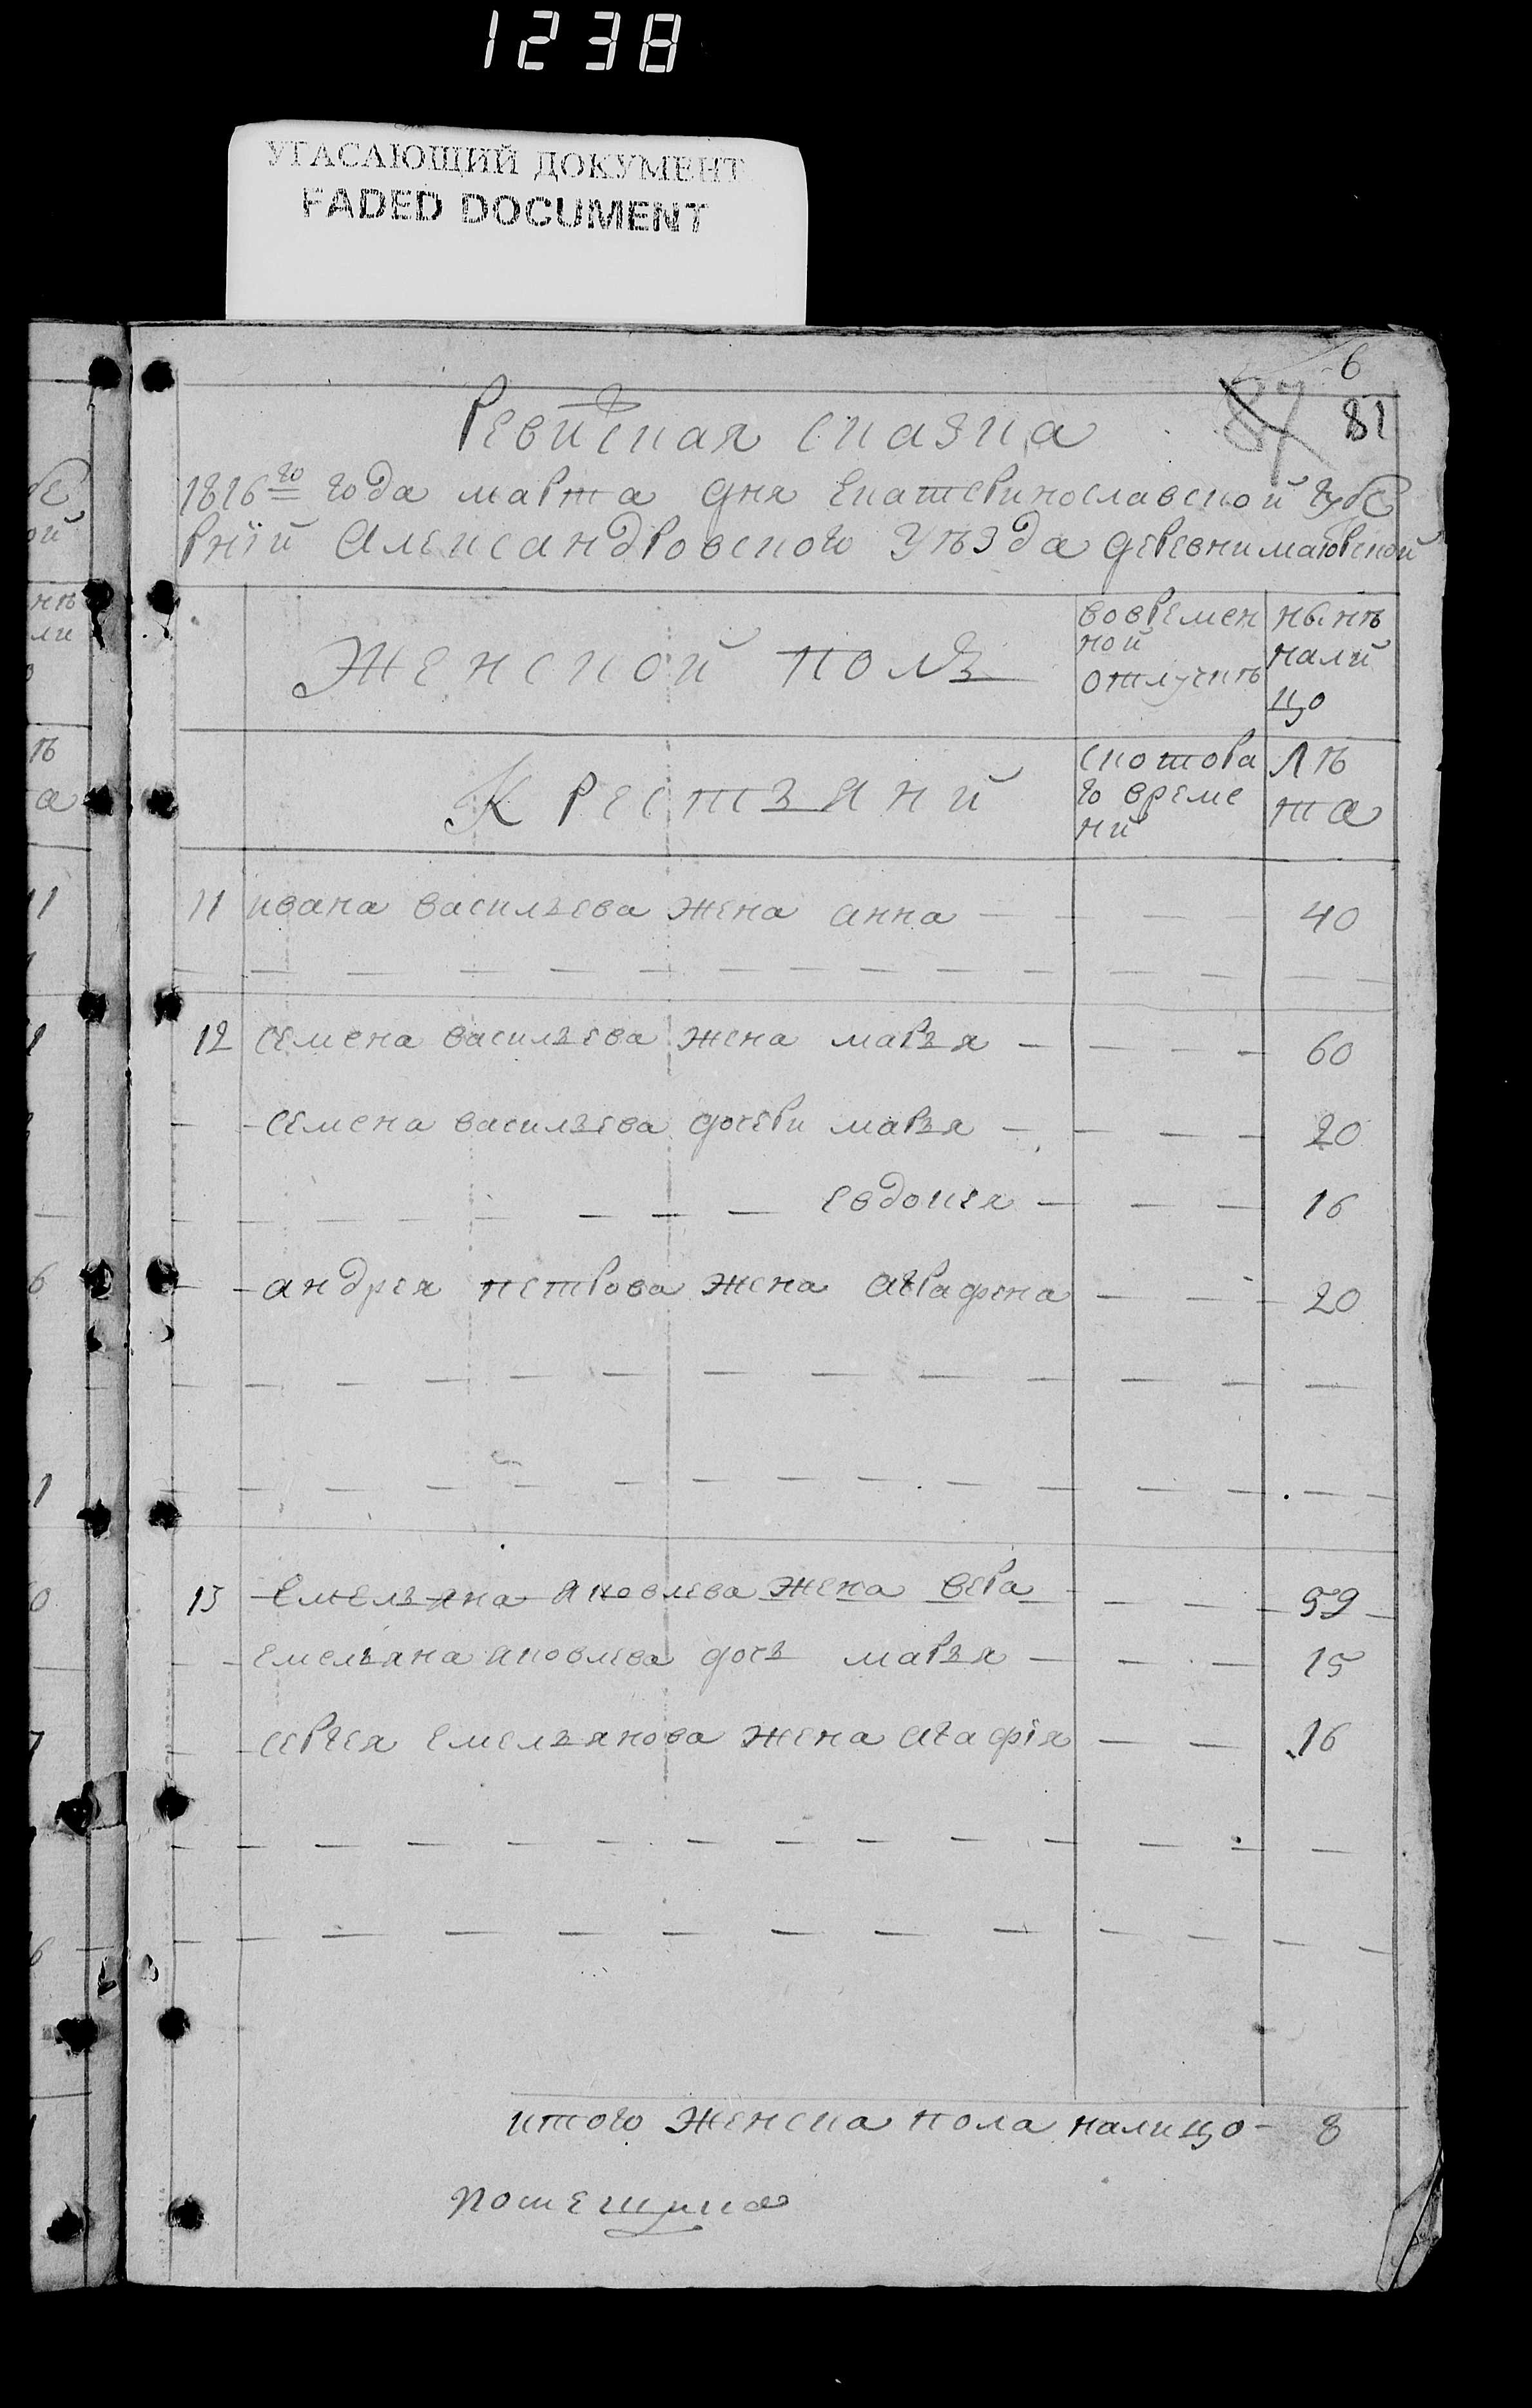 1238
УГАСАЮЩИЙ ДОКУМЕНТ
FADED DOCUMENT
6
87 81
Ревиская сказка
1816го года марта дня Екатеринославской губе
рнiй Александровского Уѣзда деревни
Женской полъ
вовремен
ной
отлучкѣ
нынѣ
нали
цо
Крестьяни
скотора
го време
ни
лѣ
та
11 ивана васильева жена анна 40
12 семена васильева жена марья 60
семена васильева дочери марья 20
евдокея 16
андрея петрова жена аграфена 20
13 емельяна яковлева жена вера 59
емельяна яковлева дочь марья 15
сергея емельянова жена агафiя 16
итого женска пола налицо 8